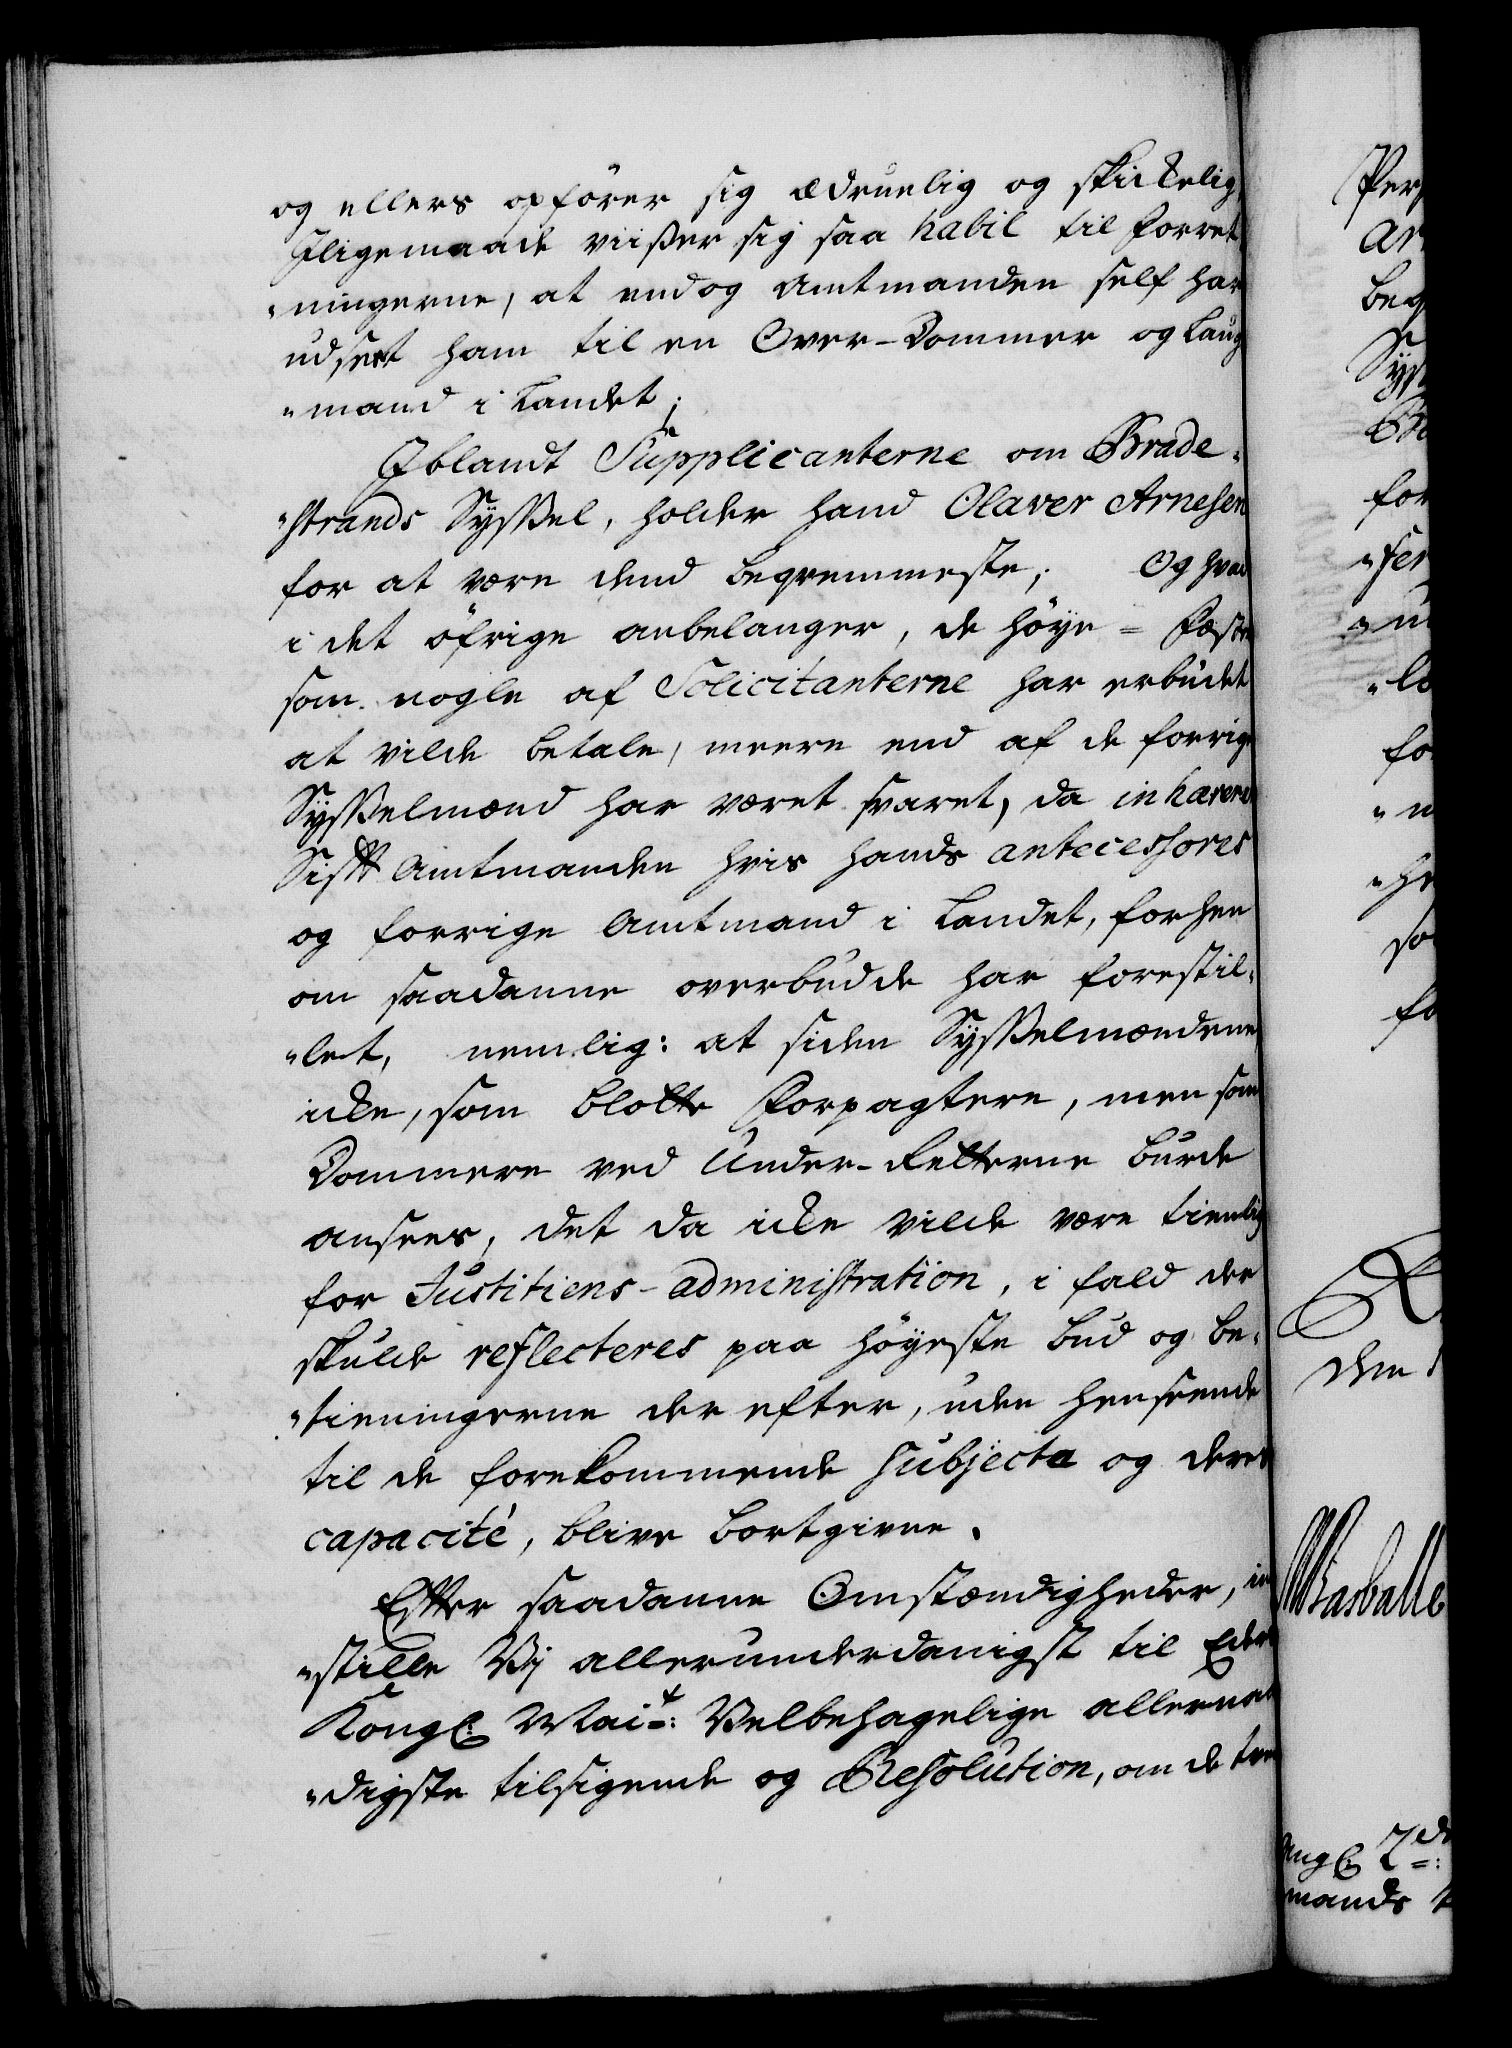 og ellers opfører sig ædruelig og skickelig,
Jligemaade viiser sig saa habil til forret-
„ningerne, at endog Amtmanden self har
udseet ham til en Over-Dommer og Laug-
„mand i Landet;
Jblandt Supplicanterne om Brade-
„strands Sysszel, holder hand Olaver Arnesen
for at være dend beqvemmeste; Og hvad
i det öfrige anbelanger, de höye- Fæste
som nogle af Solicitanterne har erbüdet
at vilde betale, meere end af de forrige
Sysszelmænd har været svaret, da inhærerer
Stifft Amtmanden hvis hands antecessores
og forrige Amtmand i Landet, forhen
om saadanne overbudde har forestil-
„let, nemlig: at siden Sysszelmændene
icke, som blotte Forpagtere, men som
Dommere ved Under-Retterne burde
ansees, det da icke vilde være tienlig
for Justitiens-administration, i fald der
skulde reflecteres paa höyeste bud og be-
„tieningerne der efter, uden henseende
til de forekommende Subjecta og deres
capacité, blive bortgivne.
Efter saadanne Omstændigheder, in-
„stille Vj allerunderdanigst til Eders
Kongl: Mait: Velbehagelige allernaa-
„digste tilsigende og Resolution, om de tre